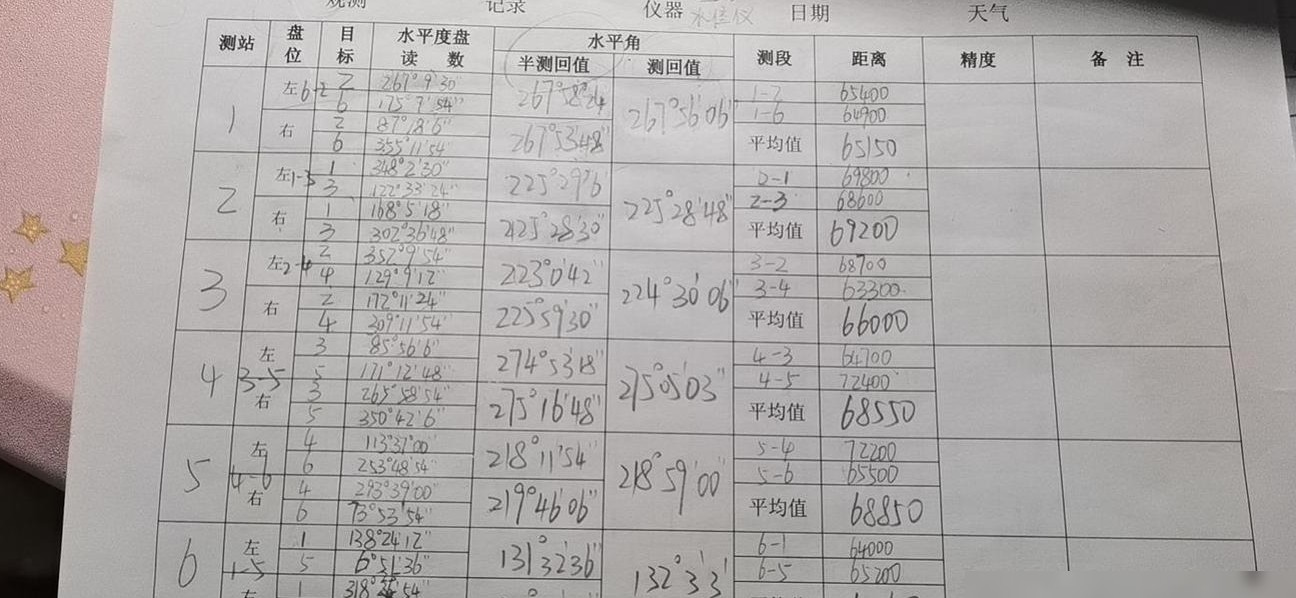 观测 记录 仪器 水准仪 日期 天气
测站 盘位 目标 水平度盘读数 水平角 测段 距离 精度 备注
半测回值 测回值
1 左6-2 2 267°9'30" 267°58'24 267°56'06" 1-2 65400
6 175°7'54" 1-6 64900
右 2 87°18'6" 267°53'48" 平均值 65150
6 355°11'54"
2 左1-3 1 348°2'30" 225°29'6 225°28'48" 2-1 69800
3 122°33'24" 2-3 68600
右 1 168°5'18" 225°28'30" 平均值 69200
3 302°36'48"
3 左2-4 2 352°9'54" 223°0'42" 224°30'06" 3-2 68700
4 129°9'12" 3-4 63300
右 2 172°11'24" 225°59'30" 平均值 66000
4 309°11'54"
4 左 3-5 3 85°56'6" 274°53'18" 275°05'03" 4-3 64700
5 171°12'48" 4-5 72400
右 3 265°58'54" 275°16'48" 平均值 68550
5 350°42'6"
5 左 4-6 4 113°37'00" 218°11'54" 218°59'00" 5-4 72200
6 253°48'54" 5-6 65500
右 4 293°39'00" 219°46'06" 平均值 68850
6 73°53'54"
6 左 1-5 1 138°24'12" 131°32'36" 132°3'3" 6-1 64000
5 6°51'36" 6-5 65200
右 1